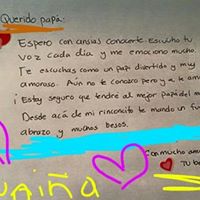 Querido papá:
Espero con ansias conocerte. Escucho tu
voz cada día y me emociono mucho.
Te escuchas como un papá divertido y muy
amoroso. Aún no te conozco pero ya te am
¡Estoy seguro que tendré al mejor papá del m
Desde acá de mi rinconcito te mando un fu
abrazo y muchos besos.
Con mucho am
Tu be
NIÑA